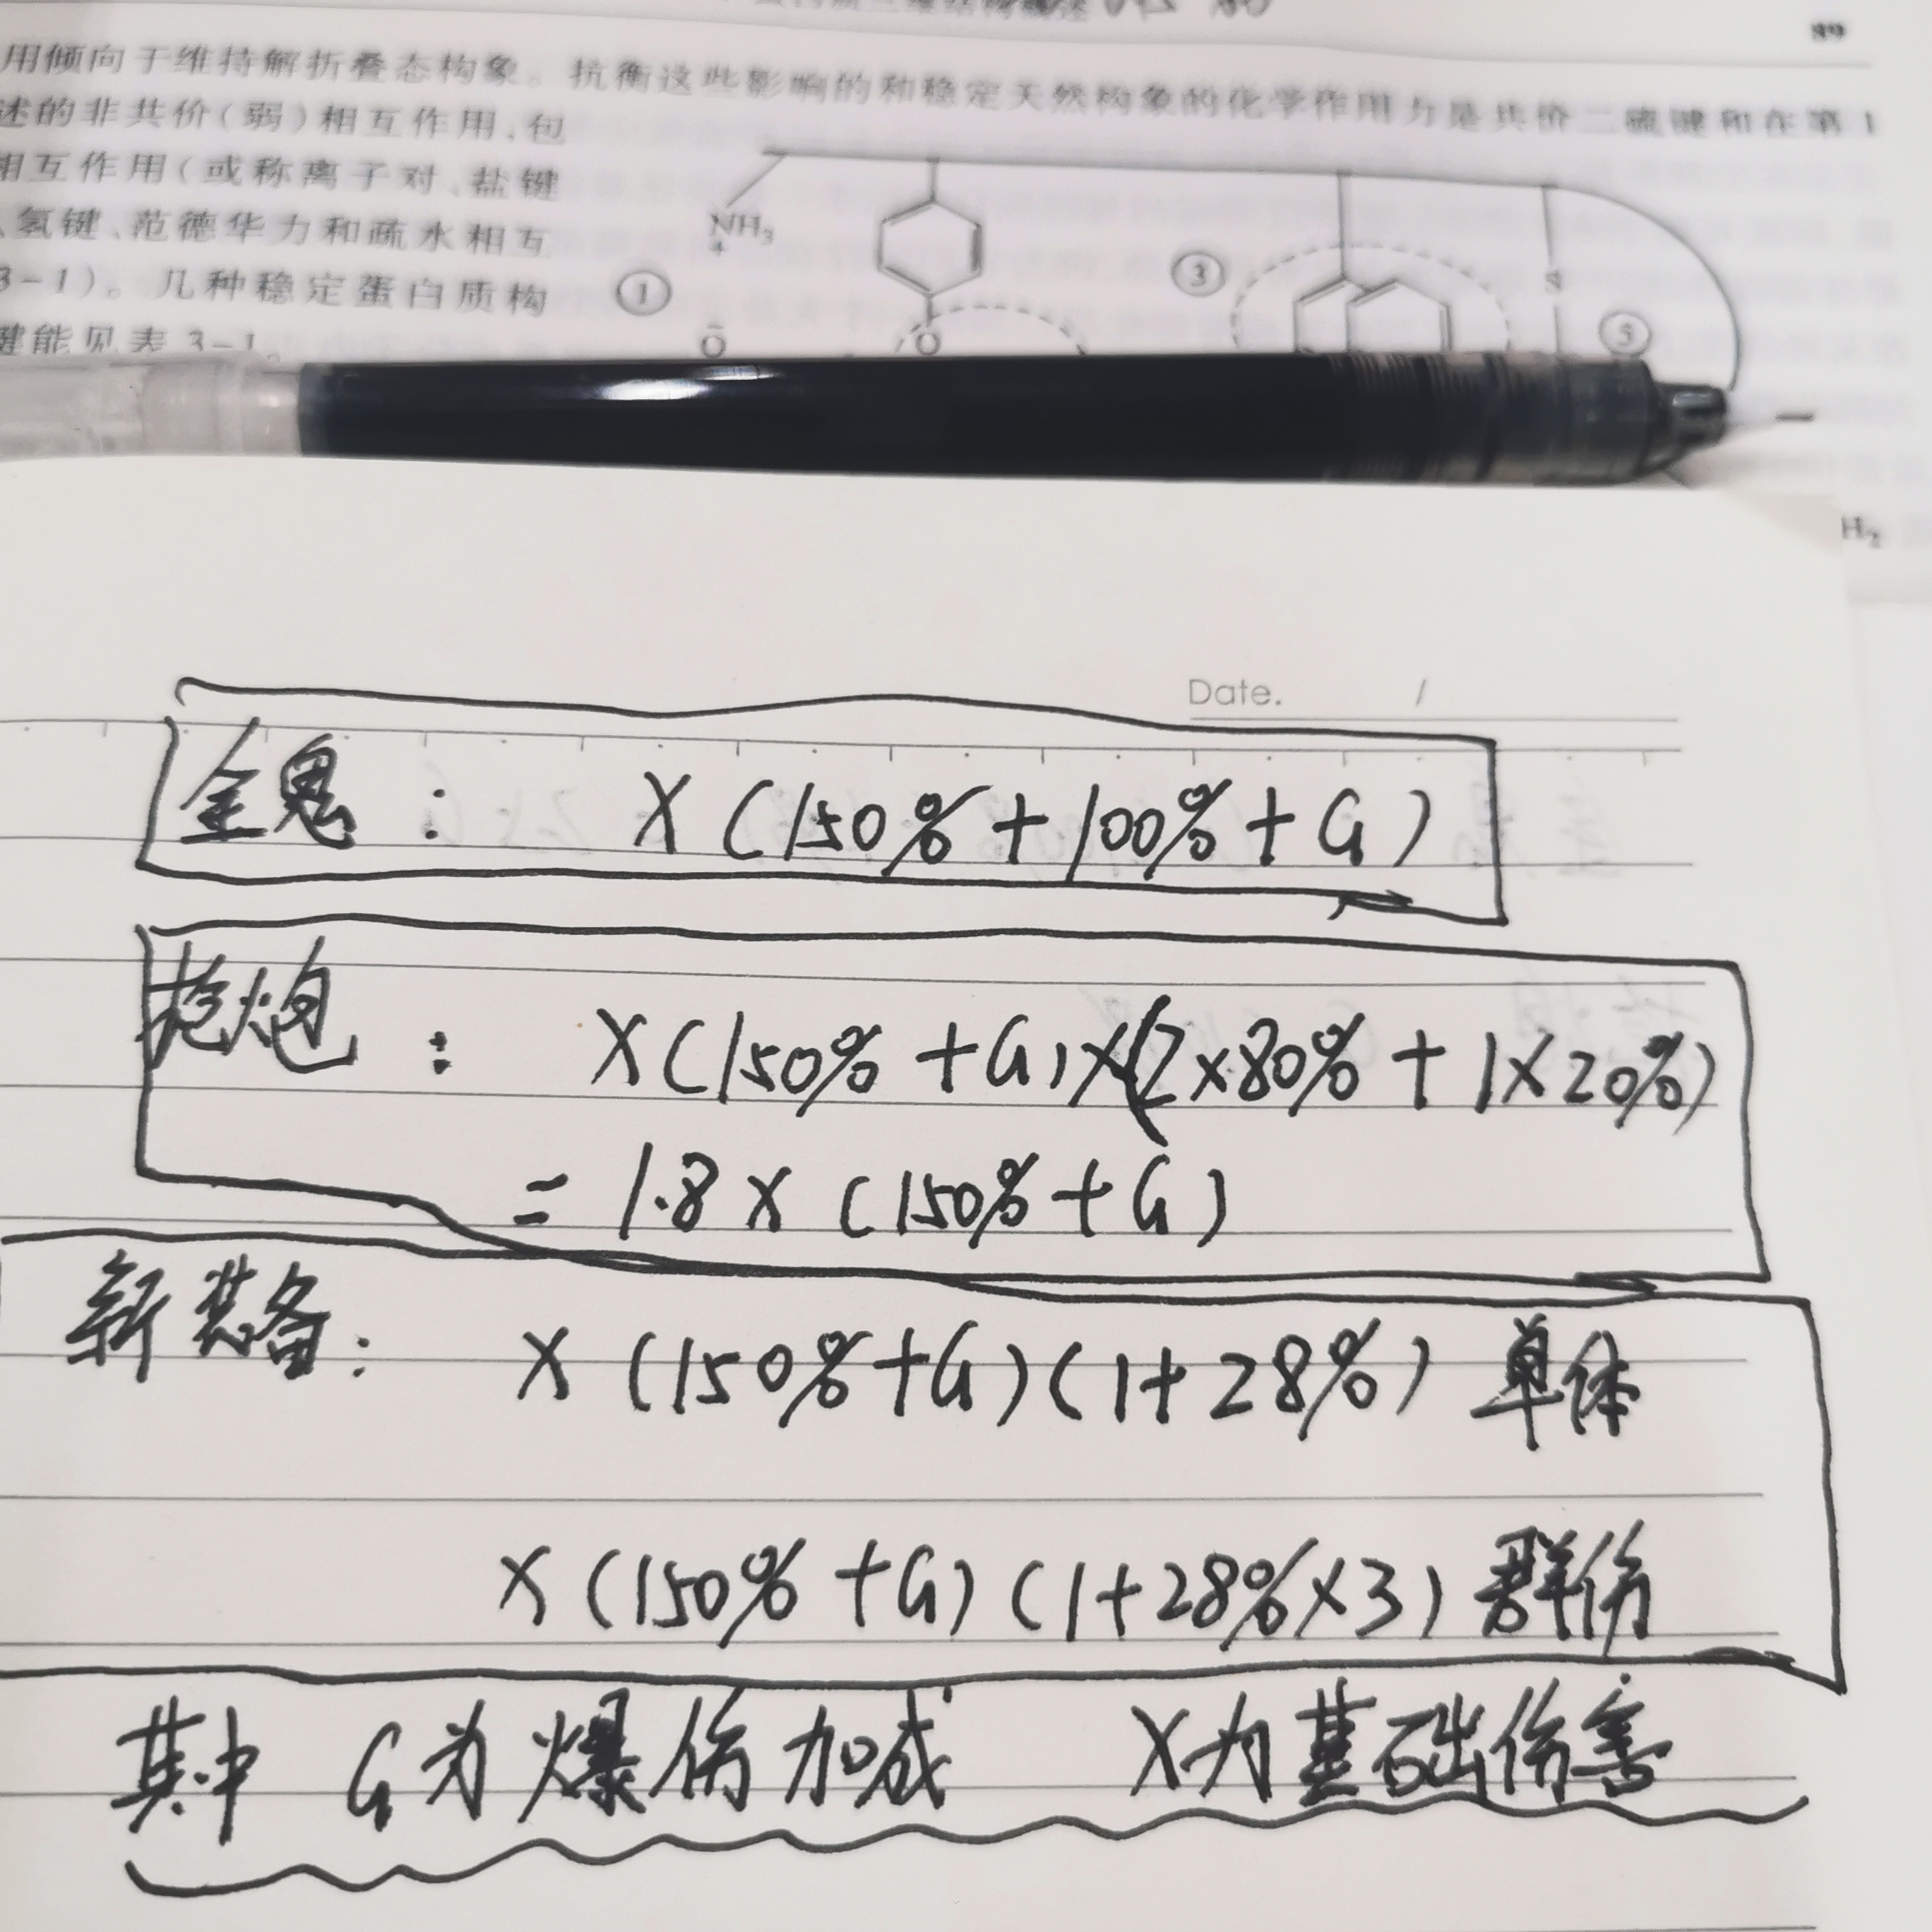 89
用倾向于维持解折叠态构象。抗衡这些影响的和稳定天然构象的化学作用力是共价二硫键和在第1
述的非共价(弱)相互作用,包
相互作用(或称离子对、盐键
、氢键、范德华力和疏水相互
3-1)。几种稳定蛋白质构
键能见表3-1。
NH3
+
①
③
S
⑤
O
O
H2
Date. /
全鬼: X(150%+100%+G)
枪炮: X(150%+G)×(2×80%+1×20%)
=1.8X(150%+G)
新装备: X(150%+G)(1+28%) 单体
X(150%+G)(1+28%×3) 群伤
其中 G为爆伤加成 X为基础伤害